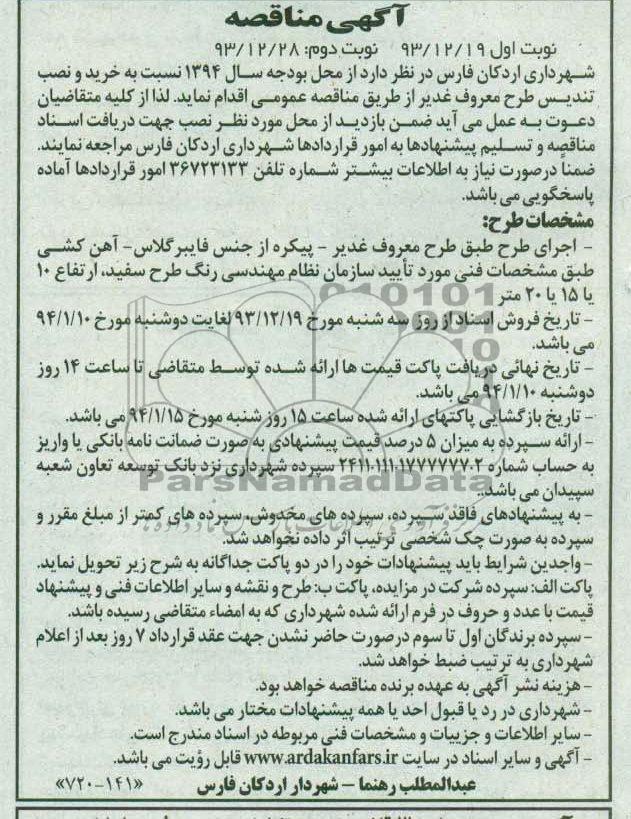 آگهی مناقصه
نوبت اول ۹۳/۱۲/۱۹ نوبت دوم: ۹۳/۱۲/۲۸
شهرداری اردکان فارس در نظر دارد از محل بودجه سال ۱۳۹۴ نسبت به خرید و نصب
تندیس طرح معروف غدیر از طریق مناقصه عمومی اقدام نماید. لذا از کلیه متقاضیان
دعوت به عمل می آید ضمن بازدید از محل مورد نظر نصب جهت دریافت اسناد
مناقصه و تسلیم پیشنهادها به امور قراردادها شهرداری اردکان فارس مراجعه نمایند.
ضمناً درصورت نیاز به اطلاعات بیشتر شماره تلفن ۳۶۷۲۳۱۳۳ امور قراردادها آماده
پاسخگویی می باشد.
مشخصات طرح:
- اجرای طرح طبق طرح معروف غدیر - پیکره از جنس فایبرگلاس- آهن کشی
طبق مشخصات فنی مورد تأیید سازمان نظام مهندسی رنگ طرح سفید، ارتفاع ۱۰
یا ۱۵ یا ۲۰ متر
- تاریخ فروش اسناد از روز سه شنبه مورخ ۹۳/۱۲/۱۹ لغایت دوشنبه مورخ ۹۴/۱/۱۰
می باشد.
- تاریخ نهائی دریافت پاکت قیمت ها ارائه شده توسط متقاضی تا ساعت ۱۴ روز
دوشنبه ۹۴/۱/۱۰ می باشد.
- تاریخ بازگشایی پاکتهای ارائه شده ساعت ۱۵ روز شنبه مورخ ۹۴/۱/۱۵ می باشد.
- ارائه سپرده به میزان ۵ درصد قیمت پیشنهادی به صورت ضمانت نامه بانکی یا واریز
به حساب شماره ۲۴۱۱.۱۱۱.۱۷۷۷۷۷۷.۲ سپرده شهرداری نزد بانک توسعه تعاون شعبه
سپیدان می باشد.
ParsNamadData
- به پیشنهادهای فاقد سپرده، سپرده های مخدوش، سپرده های کمتر از مبلغ مقرر و
سپرده به صورت چک شخصی ترتیب اثر داده نخواهد شد.
- واجدین شرایط باید پیشنهادات خود را در دو پاکت جداگانه به شرح زیر تحویل نماید.
پاکت الف: سپرده شرکت در مزایده، پاکت ب: طرح و نقشه و سایر اطلاعات فنی و پیشنهاد
قیمت با عدد و حروف در فرم ارائه شده شهرداری که به امضاء متقاضی رسیده باشد.
- سپرده برندگان اول تا سوم درصورت حاضر نشدن جهت عقد قرارداد ۷ روز بعد از اعلام
شهرداری به ترتیب ضبط خواهد شد.
- هزینه نشر آگهی به عهده برنده مناقصه خواهد بود.
- شهرداری در رد یا قبول احد یا همه پیشنهادات مختار می باشد.
- سایر اطلاعات و جزییات و مشخصات فنی مربوطه در اسناد مندرج است.
- آگهی و سایر اسناد در سایت www.ardakanfars.ir قابل رؤیت می باشد.
عبدالمطلب رهنما - شهردار اردکان فارس «۷۲۰-۱۴۱»